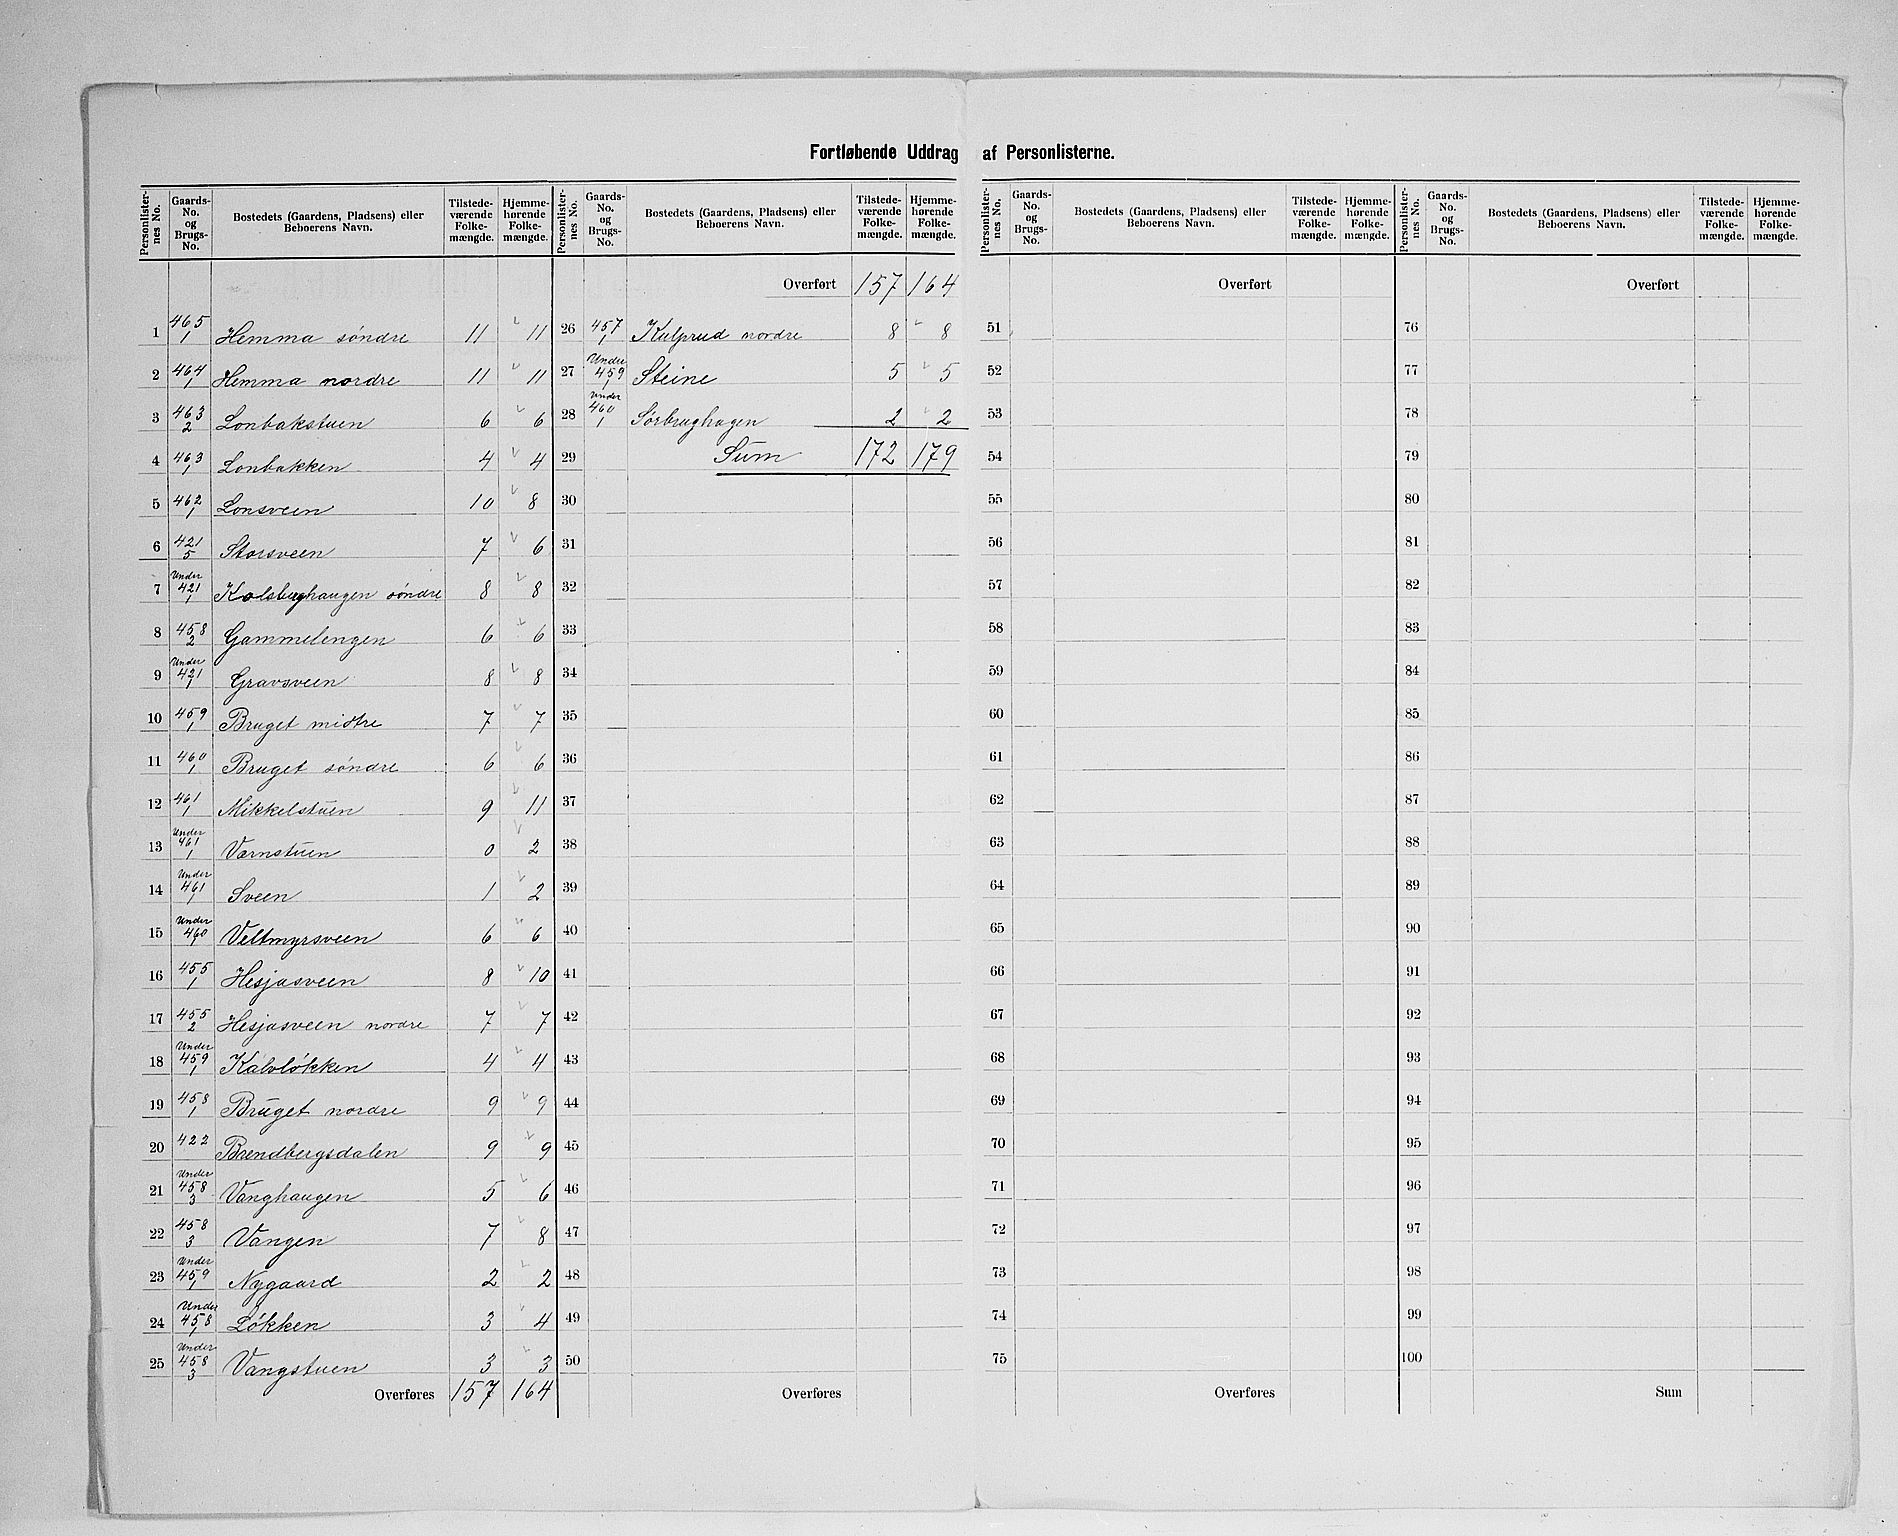 Fortløbende Uddrag af Personlisterne.
Personlisternes No. | Gaards-No. og Brugs-No. | Bostedets (Gaardens, Pladsens) eller Beboerens Navn. | Tilstedeværende Folkemængde. | Hjemmehørende Folkemængde.
1 | 465/1 | Hemma søndre | 11 | 11
2 | 464/1 | Hemma nordre | 11 | 11
3 | 463/2 | Lonbakstuen | 6 | 6
4 | 463/1 | Lonbakken | 4 | 4
5 | 462/1 | Lonsveen | 10 | 8
6 | 421/5 | Storsveen | 7 | 6
7 | Under 421/1 | Kolsberghaugen søndre | 8 | 8
8 | 458/2 | Gammelengen | 6 | 6
9 | Under 421/1 | Gravsveen | 8 | 8
10 | 459/1 | Bruget midtre | 7 | 7
11 | 460/1 | Bruget søndre | 6 | 6
12 | 461/1 | Mikkelstuen | 9 | 11
13 | Under 461/1 | Varnstuen | 0 | 2
14 | Under 461/1 | Sveen | 1 | 2
15 | Under 460/1 | Veltmyrsveen | 6 | 6
16 | 455/1 | Hesjasveen | 8 | 10
17 | 455/2 | Hesjasveen nordre | 7 | 7
18 | Under 459/1 | Kalvløkken | 4 | 4
19 | 458/1 | Bruget nordre | 9 | 9
20 | 422 | Brendbergsdalen | 9 | 9
21 | Under 458/3 | Vanghaugen | 5 | 6
22 | 458/3 | Vangen | 7 | 8
23 | Under 459/1 | Nygaard | 2 | 2
24 | Under 458/1 | Løkken | 3 | 4
25 | Under 458/3 | Vangstuen | 3 | 3
Overføres 157 164
Personlisternes No. | Gaards-No. og Brugs-No. | Bostedets (Gaardens, Pladsens) eller Beboerens Navn. | Tilstedeværende Folkemængde. | Hjemmehørende Folkemængde.
Overført 157 164
26 | 457/1 | Kulprud nordre | 8 | 8
27 | Under 459/1 | Steine | 5 | 5
28 | Under 460/1 | Sørbrughagen | 2 | 2
29 | Sum | 172 | 179
30
31
32
33
34
35
36
37
38
39
40
41
42
43
44
45
46
47
48
49
50
Overføres
Personlisternes No. | Gaards-No. og Brugs-No. | Bostedets (Gaardens, Pladsens) eller Beboerens Navn. | Tilstedeværende Folkemængde. | Hjemmehørende Folkemængde.
Overført
51
52
53
54
55
56
57
58
59
60
61
62
63
64
65
66
67
68
69
70
71
72
73
74
75
Overføres
Personlisternes No. | Gaards-No. og Brugs-No. | Bostedets (Gaardens, Pladsens) eller Beboerens Navn. | Tilstedeværende Folkemængde. | Hjemmehørende Folkemængde.
Overført
76
77
78
79
80
81
82
83
84
85
86
87
88
89
90
91
92
93
94
95
96
97
98
99
100
Sum